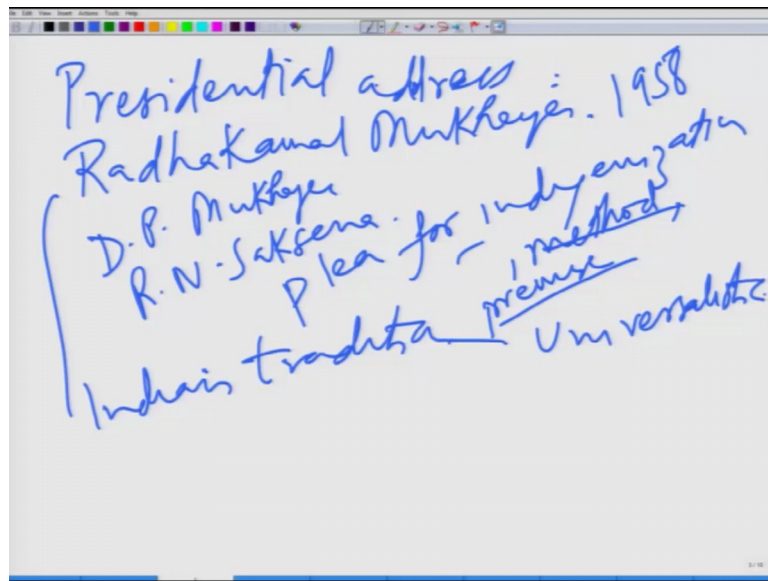 File Edit View Insert Actions Tools Help
Presidential address :
RadhaKamal Mukherjee. 1958
D. P. Mukherjee
R. N. Saksena.
Plea for indigenization
method
premise
India's tradition Universalistic
3/10